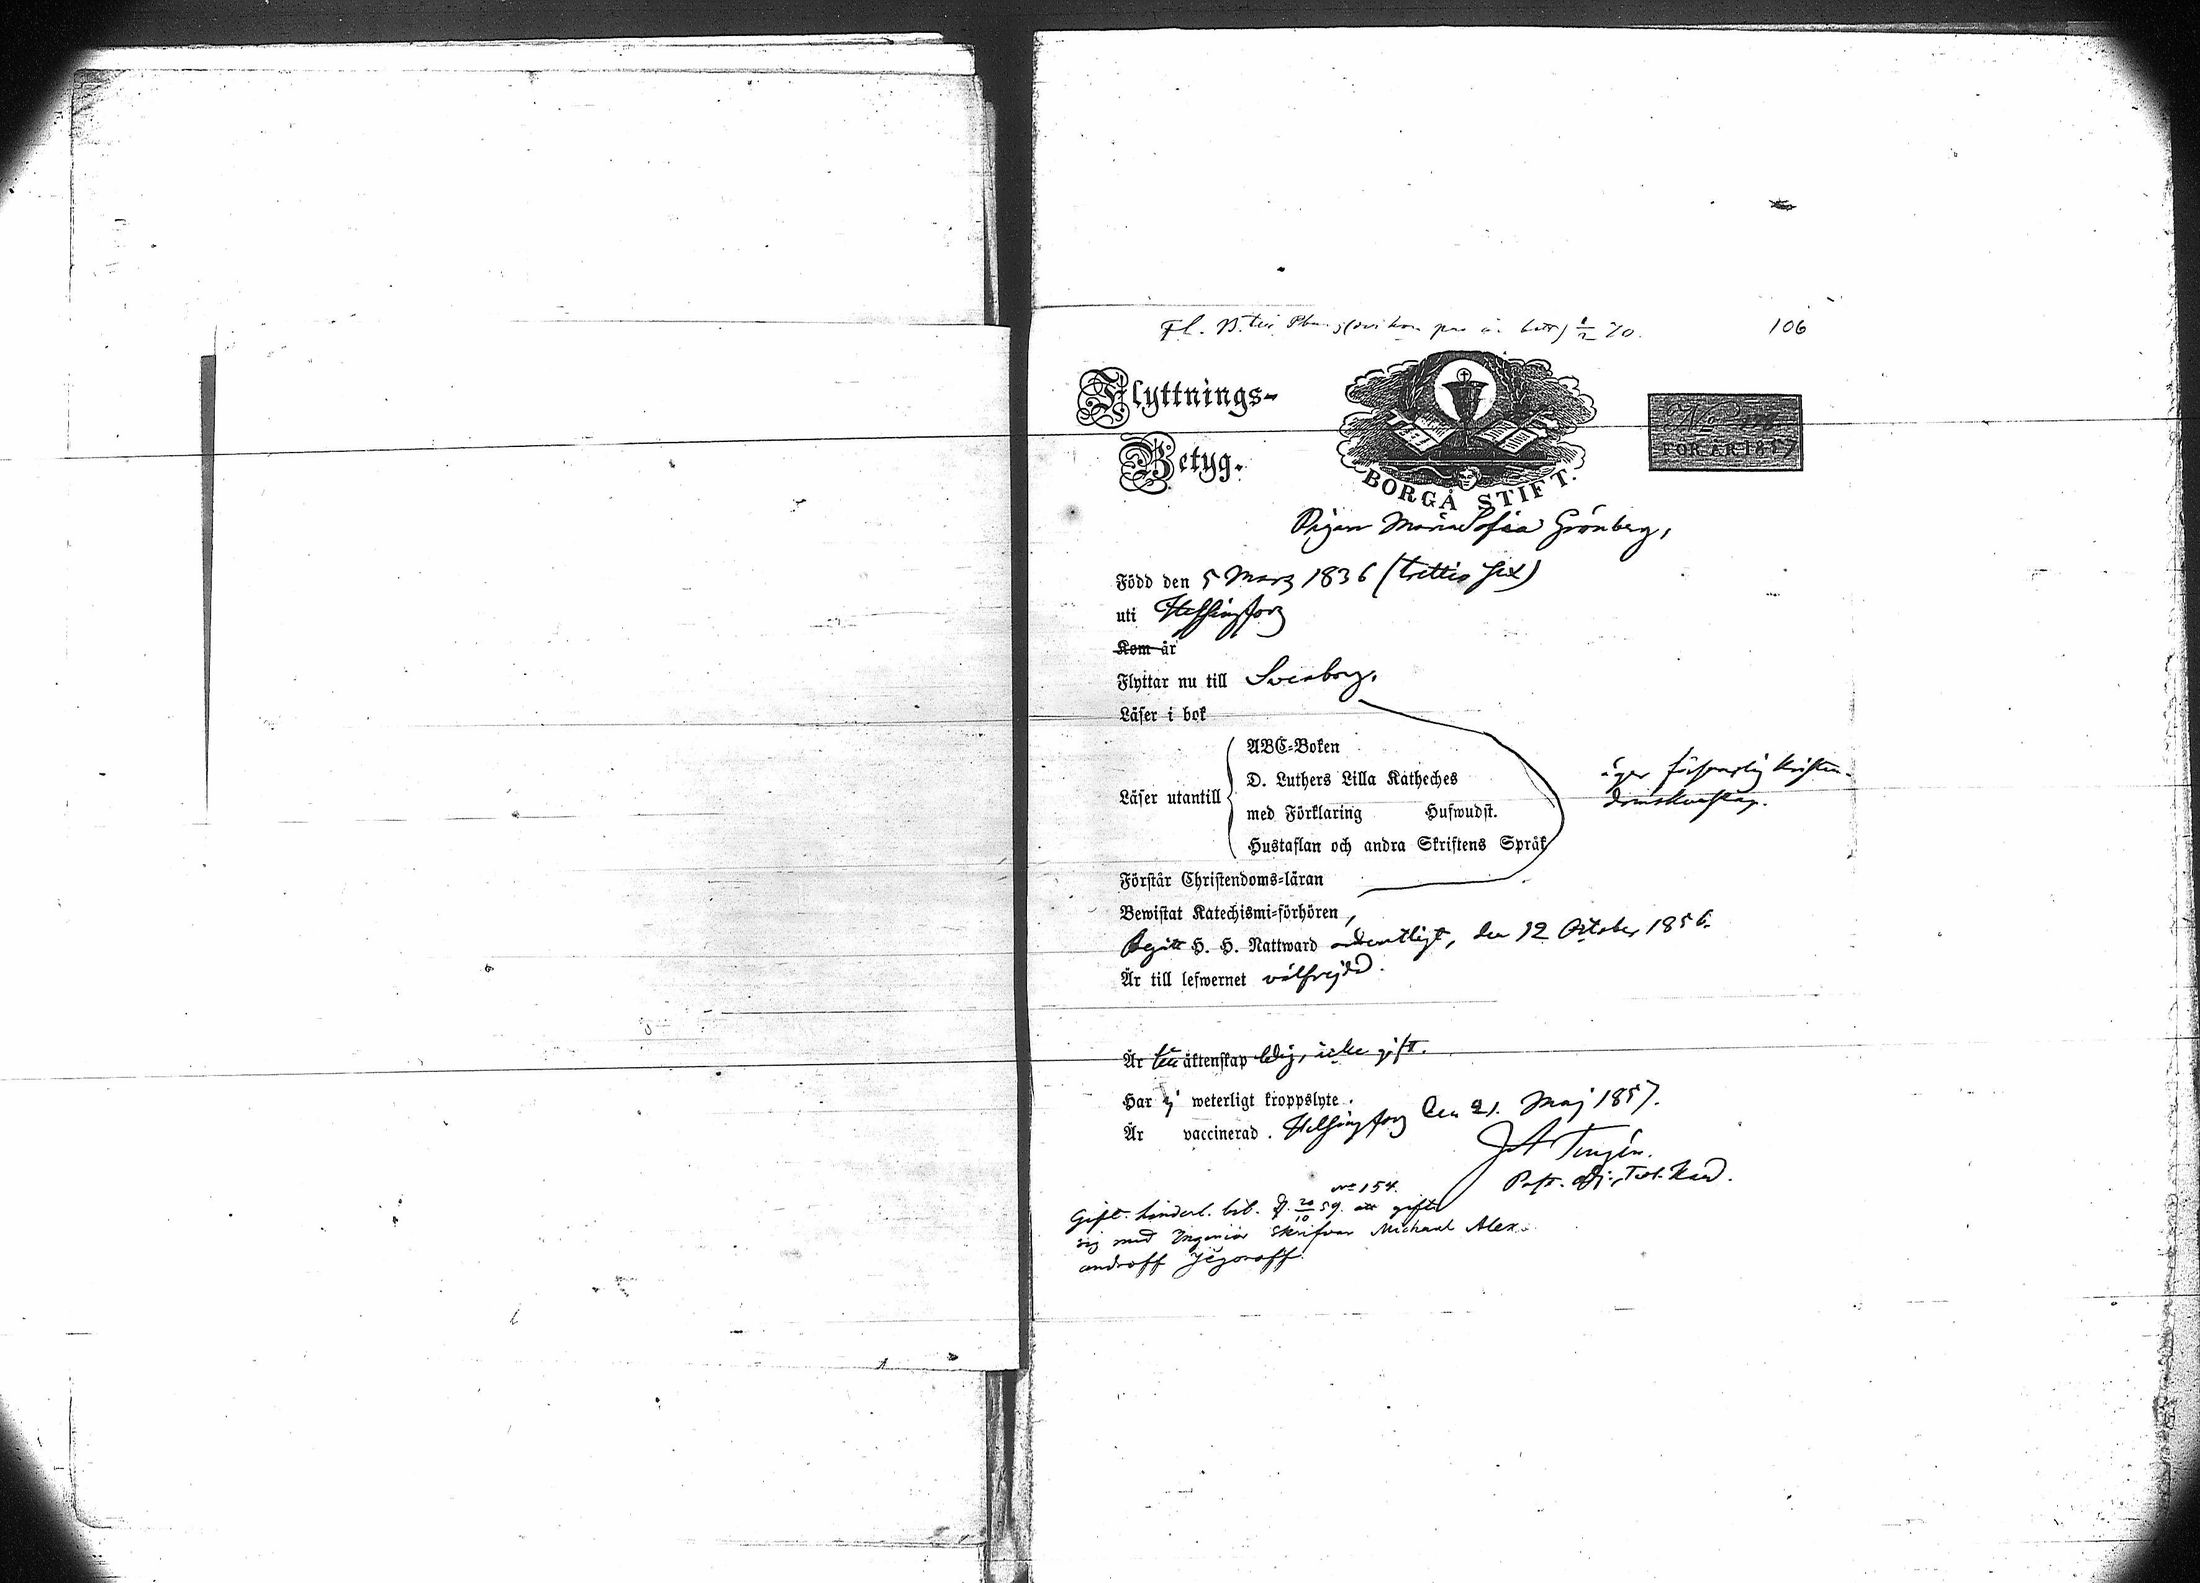 106
Flyttnings-
Betyg.
FÖR ÅR 1857
BORGÅ STIFT.
Pigan Maria Sofia Grönberg,
Född den 5 Mars 1836 (trettio sex)
uti Helsingfors
Kom år
Flyttar nu till Sveaborg.
Läser i bok
Läser utantill
ABC-Boken
D. Luthers Lilla Katheches
med Förklaring Hufwudst.
Hustaflan och andra Skriftens Språk
äger försvarlig kristen-
domskunskap.
Förstår Christendoms-läran
Bewistat Katechismi-förhören,
Begått H. H. Nattward ordentligt, den 12 October 1856.
Är till lefwernet välfrejdad.
Är till äktenskap ledig, icke gift.
Har ej weterligt kroppslyte.
Är vaccinerad. Helsingfors den 21. Maj 1857.
Past. Adj.
No 154.
Gift. hinderl. bet. d. 20/10 59. att gifta
sig med Ingeniör Skrifvar Michael Alex-
androff Jegoroff.